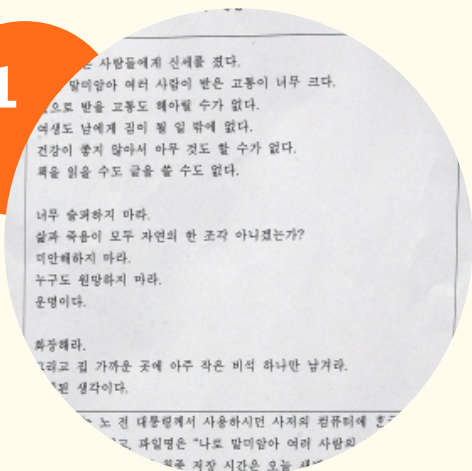 1
사람들에게 신세를 졌다.
말미암아 여러 사람이 받은 고통이 너무 크다.
으로 받을 고통도 헤아릴 수가 없다.
여생도 남에게 짐이 될 일 밖에 없다.
건강이 좋지 않아서 아무 것도 할 수가 없다.
책을 읽을 수도 글을 쓸 수도 없다.
너무 슬퍼하지 마라.
삶과 죽음이 모두 자연의 한 조각 아니겠는가?
미안해하지 마라.
누구도 원망하지 마라.
운명이다.
화장해라.
그리고 집 가까운 곳에 아주 작은 비석 하나만 남겨라.
된 생각이다.
노 전 대통령께서 사용하시던 사저의 컴퓨터에
파일명은 "나로 말미암아 여러 사람의
저장 시간은 오늘